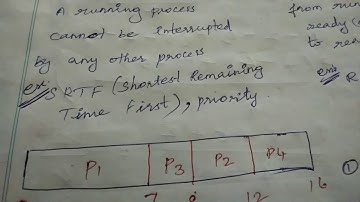 A running process
cannot be interrupted
by any other process
ex: SRTF (shortest Remaining
Time First), priority.
from run
ready (
to re
ex:
R
P1 P3 P2 P4
7 8 12 16
1